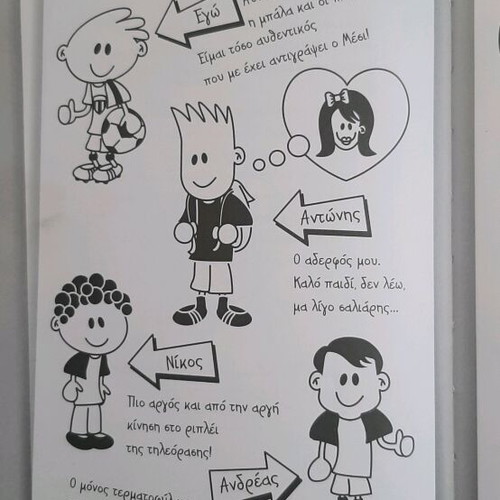 Εγώ
η μπάλα και οι
Είμαι τόσο αυθεντικός
που με έχει αντιγράψει ο Μέσι!
Αντώνης
Ο αδερφός μου.
Καλό παιδί, δεν λέω,
μα λίγο σαλιάρης...
Νίκος
Πιο αργός και από την αργή
κίνηση στο ριπλέι
της τηλεόρασης!
Ανδρέας
Ο μόνος